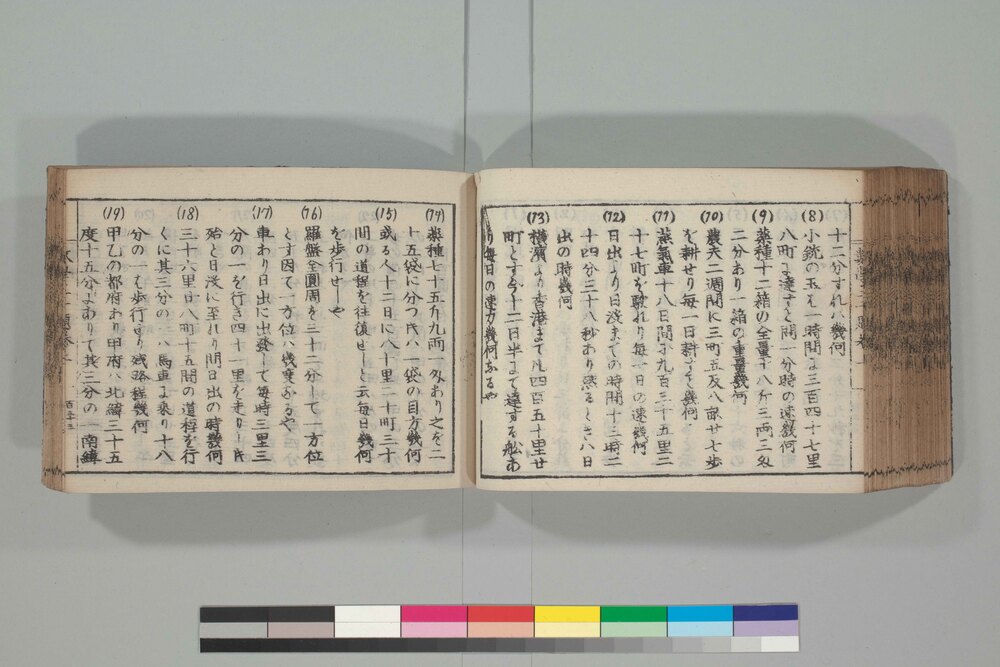 十二分すれハ幾何
(8) 小銃の玉ハ一時間に三百四十七里
八町に達すと問一分時の速幾何
(9) 薬種十二箱の全量十八斤三両三匁
二分あり一箱の重量幾何
(10) 農夫二週間に三町五反八畝廿七歩
を耕せり毎一日耕すこと幾何
(11) 蒸氣車十八日間に九百三十五里二
十七町を駛れり毎一日の速幾何
(12) 日出より日没までの時間十三時二
十四分三十八秒あり然るときハ日
出の時幾何
(13) 横濱より香港まで凡四百五十里廿
町とす十二日半にて達する舩
り毎日の速力幾何なるや
(14) 薬種七十五斤九両一匁あり之を二
十五袋に分つ時ハ一袋の目方幾何
(15) 或る人十二日に八十里二十町三十
間の道程を往復せしと云毎日幾何
を歩行せしや
(16) 羅盤全圓周を三十二分して一方位
とす因て一方位ハ幾度なるや
(17) 車あり日出に出発して毎時三里三
分の一を行き四十一里を走りし時
殆と日没に至れり問日出の時幾何
(18) 三十六里廿八町十五間の道程を行
くに其三分の二ハ馬車に乗り十八
分の一を歩行せり残路程幾何
(19) 甲乙の都府あり甲府ハ北緯三十五
度十五分にありて其三分の一南緯